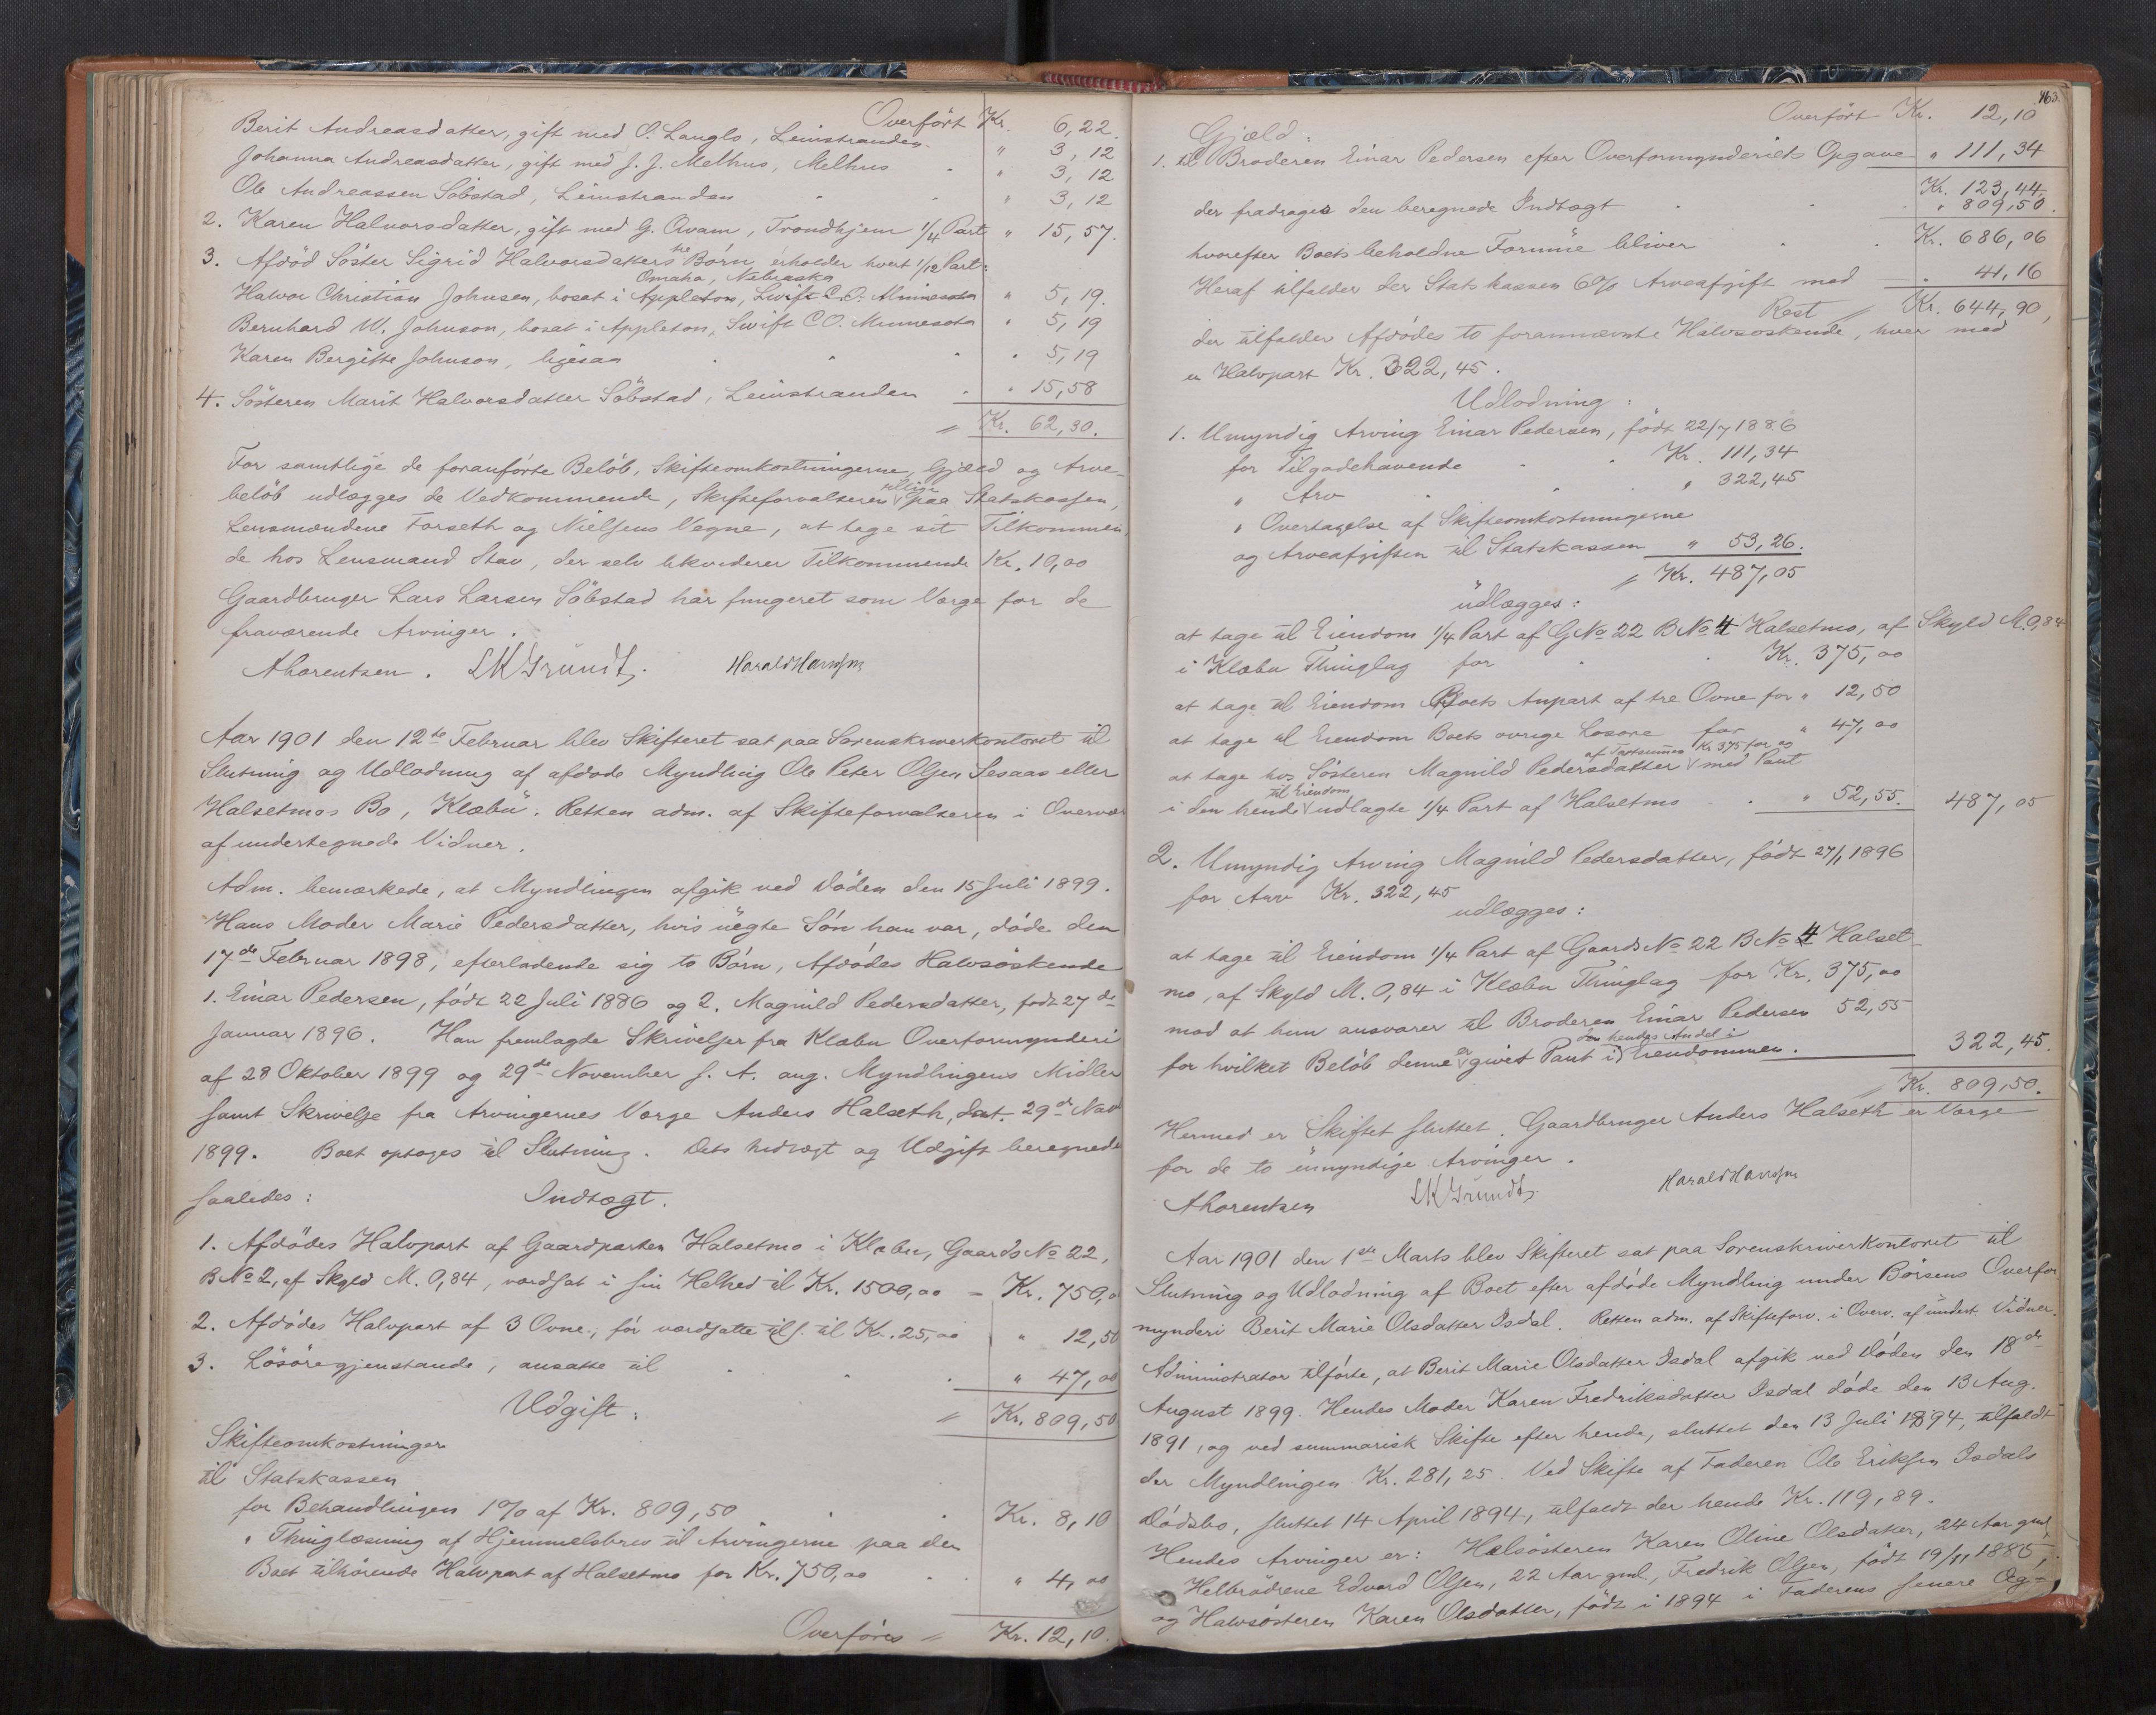 Overført Kr. 6,22.
Berit Andreasdatter, gift med O. Langlo, Leinstranden. " 3,12
Johanna Andreasdatter, gift med J. J. Melhus, Melhus " 3,12
Ole Andreassen Söbstad, Leinstranden " 3,12
2. Karen Halvorsdatter, gift med G. Qvam, Trondhjem 1/4 Part " 15,57.
3. Afdöd Söster Sigrid Halvorsdatters tre Börn, erholder hvert 1/12 Part:
Omaha, Nebraska
Halvor Christian Johnsen, bosat i Appleton, Swift C.O. Minnesota " 5,19.
Bernhard W. Johnson, bosat i Appleton, Swift CO. Minnesota " 5,19
Karen Bergitte Johnson, ligesaa " 5,19
4. Sösteren Marit Halvorsdatter Söbstad, Leinstranden " 15,58
Kr. 62,30.
For samtlige de foranförte Belöb, Skifteomkostningerne, Gjæld og Arve-
belöb udlægges de Vedkommende, Skifteforvalteren tillige paa Statskassen,
Lensmændene Forseth og Nielsens Vegne, at tage sit Tilkommen-
de hos Lensmand Stav, der selv likviderer Tilkommende Kr. 10,00
Gaardbruger Lars Larsen Söbstad har fungeret som Værge for de
fraværende Arvinger.
A Lorentzen. LKGrundt. Harald Hansen
Aar 1901 den 12te Februar blev Skifteret sat paa Sorenskriverkontoret til
Slutning og Udlodning af afdøde Myndling Ole Peter Olsen Sesaas eller
Halsetmos Bo, Klæbu. Retten adm. af Skifteforvalteren i Overvær
af undertegnede Vidner.
Adm. bemærkede, at Myndlingen afgik ved Döden den 15 Juli 1899.
Hans Moder Marie Pedersdatter, hvis uægte Sön han var, döde den
17de Februar 1898, efterladende sig to Börn, Afdödes Halvsöskende
1. Einar Pedersen, födt 22 Juli 1886 og 2. Magnild Pedersdatter, födt 27de
Januar 1896. Han fremlagde Skrivelser fra Klæbu Overformynderi
af 28 Oktober 1899 og 29de November s. A. ang. Myndlingens Midler
samt Skrivelse fra Arvingernes Værge Anders Halseth, dat. 29de Novbr
1899. Boet optoges til Slutning. Dets Indtægt og Udgift beregnedes
saaledes: Indtægt.
1. Afdödes Halvpart af Gaardparten Halsetmo i Klæbu, Gaards No 22,
B No 2, af Skyld M. 0,84, værdsat i sin Helhed til Kr. 1500,00 - Kr. 750,00
2. Afdödes Halvpart af 3 Ovne, før værdsatte tils. til Kr. 25,00 " 12,50
3. Lösöregjenstande, ansatte til " 47,00
Kr. 809,50
Udgift:
Skifteomkostninger
til Statskassen
for Behandlingen 1% af Kr. 809,50 Kr. 8,10
" Thinglæsning af Hjemmelsbrev til Arvingerne paa den
Boet tilhörende Halvpart af Halsetmo for Kr. 750,00 " 4,00
Overföres Kr. 12,10.
463.
Overfört Kr. 12,10
Gjæld.
1. til Broderen Einar Pedersen efter Overformynderiets Opgave " 111,34
Kr. 123,44.
der fradrages den beregnede Indtægt " 809,50.
hvorefter Boets beholdne Formue bliver Kr. 686,06
Heraf tilfalder der Statskassen 6% Arveafgift med 41,16
Rest Kr. 644,90,
der tilfalder Afdödes to forannævnte Halvsöskende, hver med
en Halvpart Kr. 322,45.
Udlodning:
1. Umyndig Arving Einar Pedersen, födt 22/7 1886
for Tilgodehavende Kr. 111,34
" Arv " 322,45
" Overtagelse af Skifteomkostningerne
og Arveafgiften til Statskassen " 53,26.
Kr. 487,05
udlægges:
at tage til Eiendom 1/4 Part af GNo 22 BNo 4 Halsetmo, af Skyld M. 0,84
i Klæbu Thinglag for Kr. 375,00
at tage til Eiendom Boets Anpart af tre Ovne for " 12,50
at tage til Eiendom Boets øvrige Løsøre for " 47,00
at tage hos Søsteren Magnild Pedersdatter af Taxtsummen Kr 375 for 00 med Pant
i den hende til Eiendom udlagte 1/4 Part af Halsetmo " 52,55. 487,05
2. Umyndig Arving Magnild Pedersdatter, födt 27/1 1896
for Arv Kr. 322,45
udlægges:
at tage til Eiendom 1/4 Part af Gaards No 22 B No 4 Halset-
mo, af Skyld M. 0,84 i Klæbu Thinglag for Kr. 375,00
mod at hun ansvarer til Broderen Einar Pedersen 52,55
for hvilket Belöb denne er givet Pant i den hendes Andel i Eiendommen. 322,45.
Kr. 809,50.
Hermed er Skiftet sluttet. Gaardbruger Anders Halseth er Værge
for de to umyndige Arvinger.
A Lorentzen LKGrundt. Harald Hansen
Aar 1901 den 1ste Marts blev Skifteret sat paa Sorenskriverkontoret til
Slutning og Udlodning af Boet efter afdöde Myndling under Börsens Overfor-
mynderi Berit Marie Olsdatter Isdal. Retten adm. af Skifteforv. i Overv. af undert. Vidner.
Administrator tilförte, at Berit Marie Olsdatter Isdal afgik ved Döden den 18de
August 1899. Hendes Moder Karen Fredriksdatter Isdal döde den 13 Aug.
1891, og ved summarisk Skifte efter hende, sluttet den 13 Juli 1894, tilfaldt
der Myndlingen Kr. 281,25. Ved Skifte af Faderen Ole Eriksen Isdals
Dödsbo, sluttet 14 April 1894, tilfaldt der hende Kr. 119,89.
Hendes Arvinger er: Helsösteren Karen Oline Olsdatter, 24 Aar gml,
Helbrödrene Edvard Olsen, 22 Aar gml., Fredrik Olsen, födt 19/11 1885,
og Halvsösteren Karen Olsdatter, födt i 1894 i Faderens senere Æg-